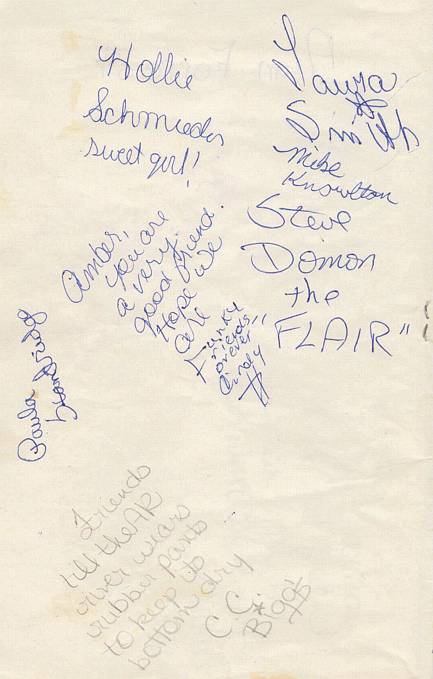 Hollie
Schmieder
sweet girl!
Laura
Smith
Mike
Knowlton
Steve
Domon
the
"FLAIR"
Amber,
you are
a very
good friend.
Hope we
are
Funky
Friends
Forever
Cindy
Paula
Friends
till the AR
river wears
rubber pants
to keep its
bottom dry
C.C.
Biggs